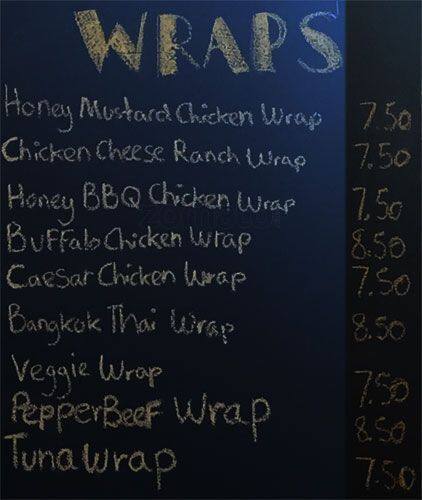 WRAPS
Honey Mustard Chicken Wrap 7.50
Chicken Cheese Ranch Wrap 7.50
Honey BBQ Chicken Wrap 7.50
Buffalo Chicken Wrap 8.50
Caesar Chicken Wrap 7.50
Bangkok Thai Wrap 8.50
Veggie Wrap 7.50
PepperBeef Wrap 8.50
Tuna Wrap 7.50